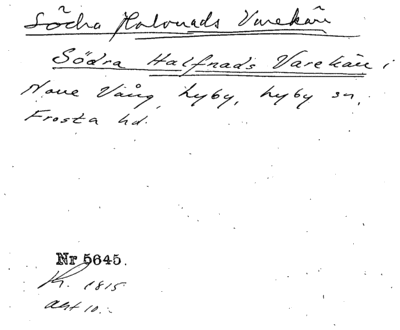 Södra Halvnads Varekärr
Södra Halfnads Varekärr i
None Vång, Lyby, Lyby sn,
Frosta hd.
Nr 5645.
K. 1815
Akt 10.